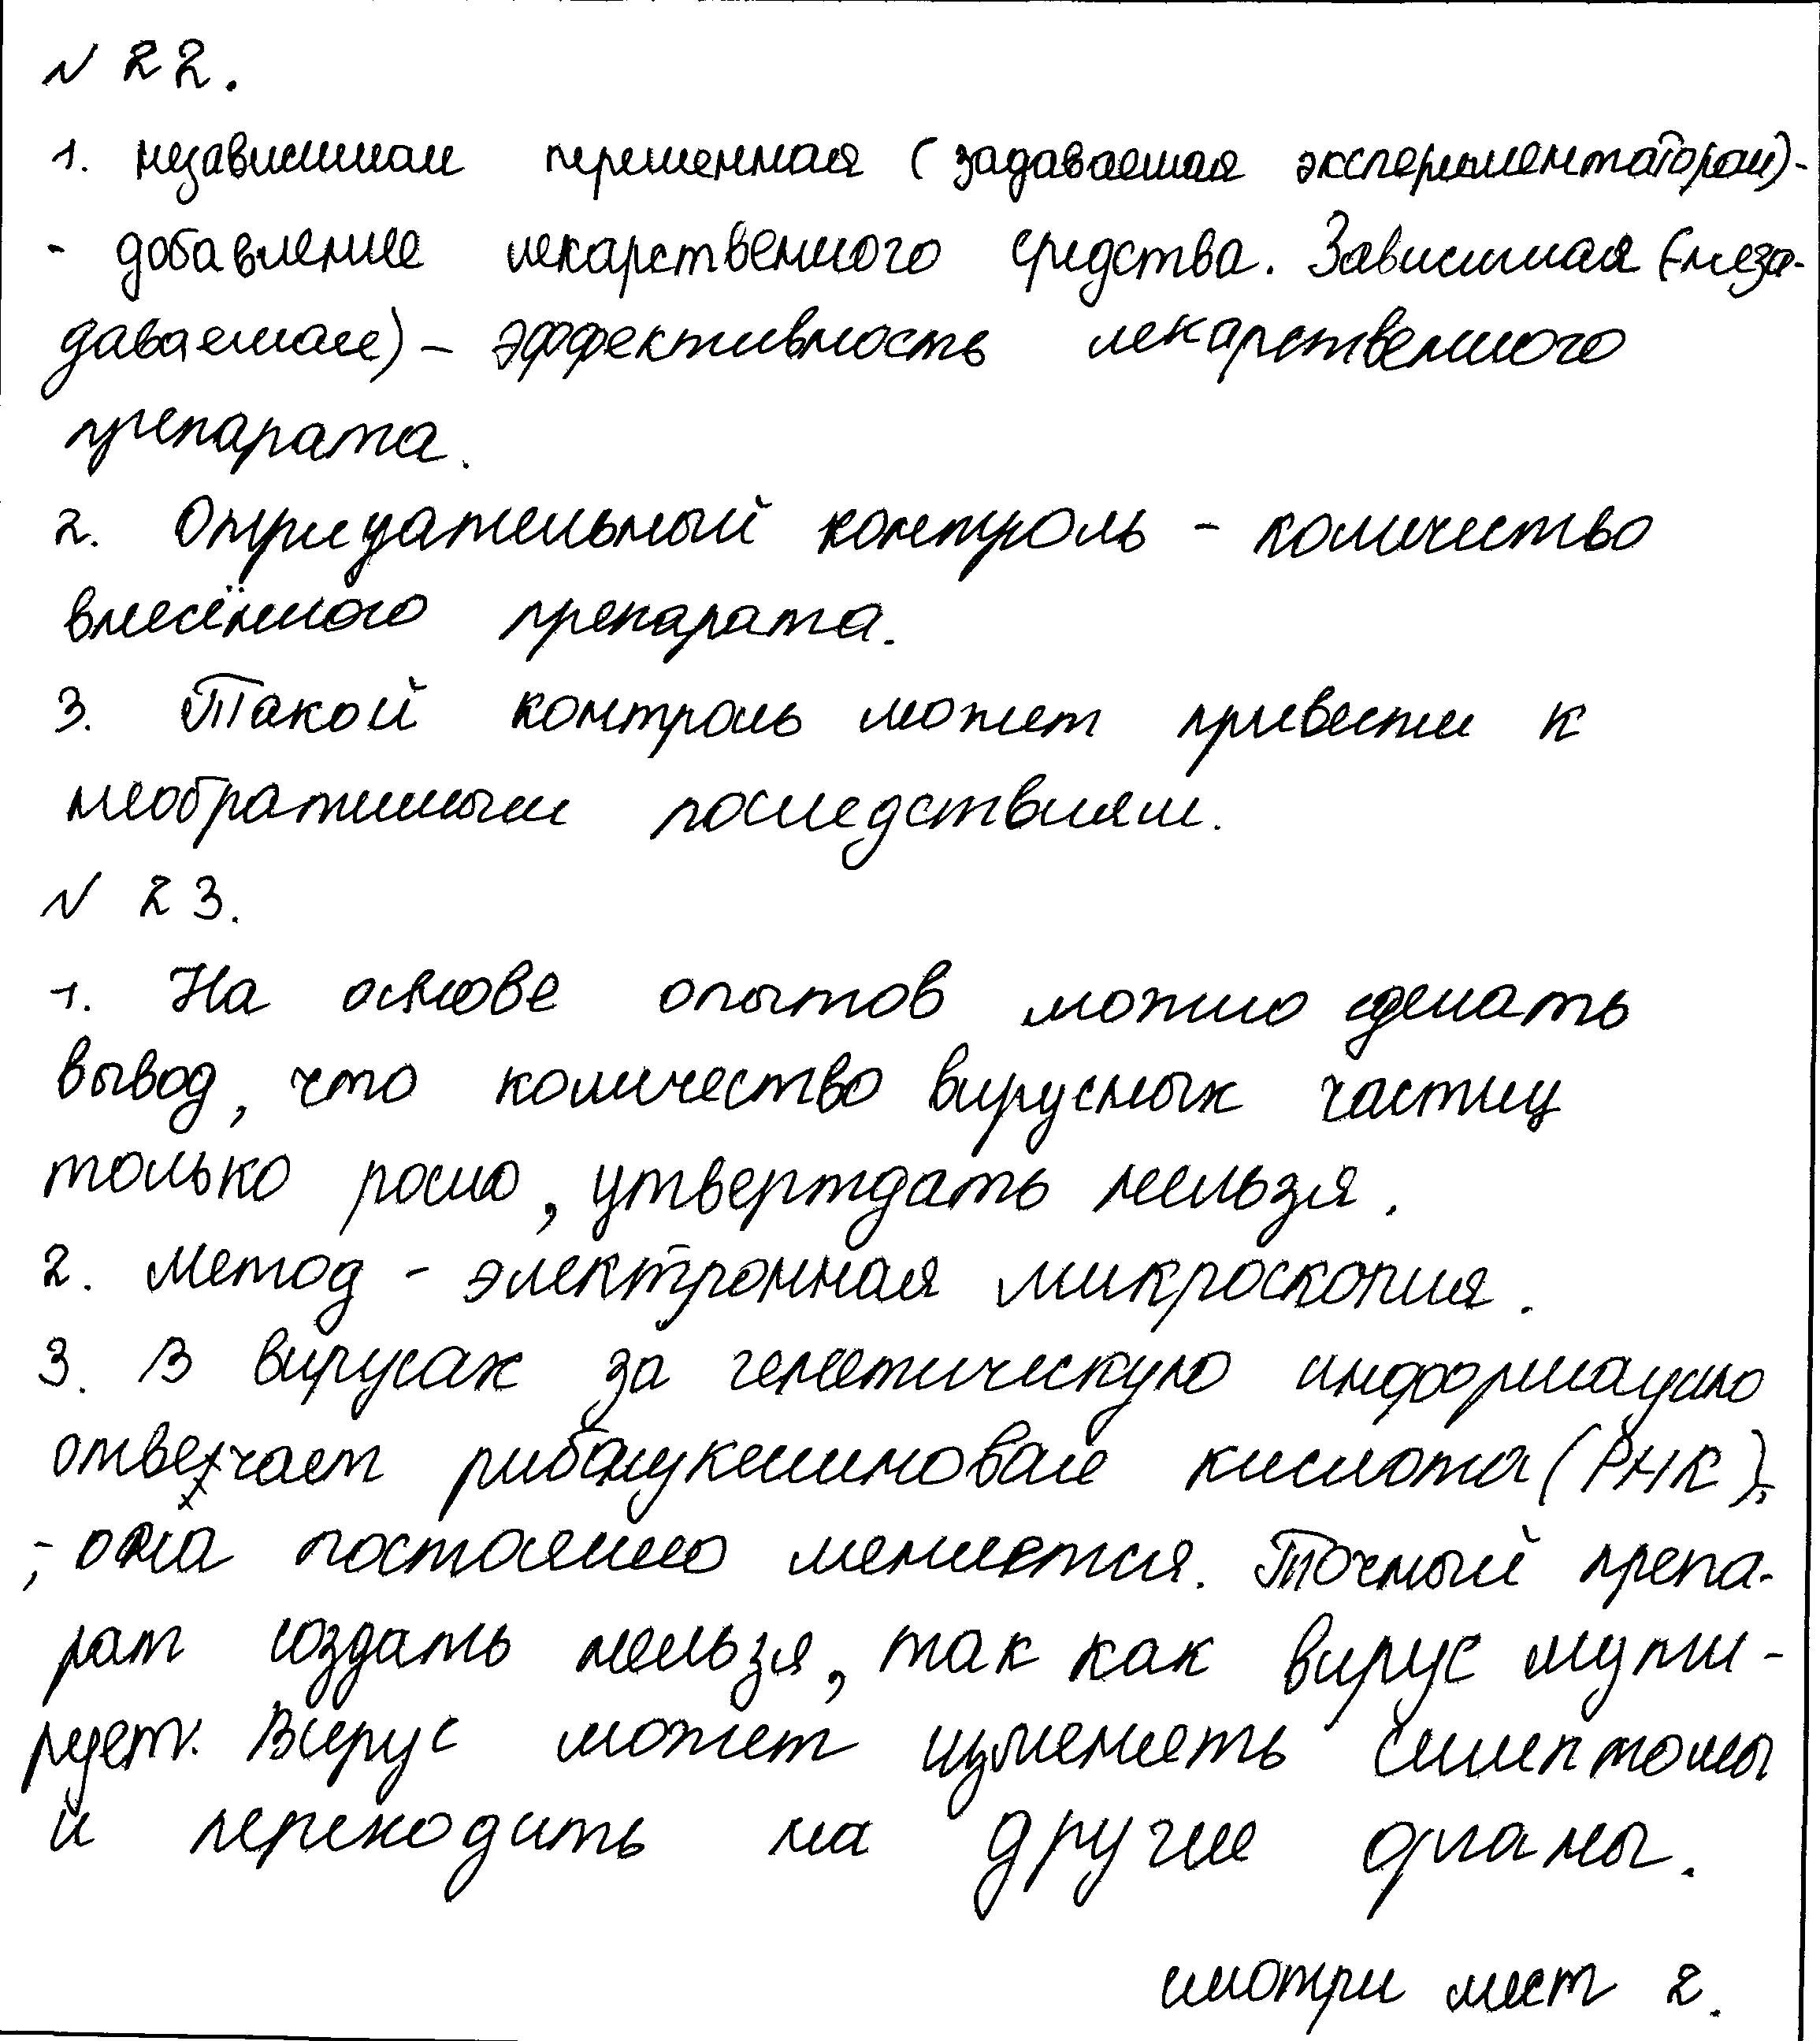 № 22.
1. независимая переменная (задаваемая экспериментатором)-
- добавление лекарственного средства. Зависимая (неза-
даваемая) – эффективность лекарственного
препарата.
2. Отрицательный контроль – количество
внесённого препарата.
3. Такой контроль может привести к
необратимым последствиям.
№ 23.
1. На основе опытов можно сделать
вывод, что количество вирусных частиц
только росло, утверждать нельзя.
2. Метод - электронная микроскопия.
3. В вирусах за генетическую информацию
отвечает рибонуклеиновая кислота (РНК),
- она постоянно меняется. Точный препа-
рат создать нельзя, так как вирус мути-
рует. Вирус может изменять симптомы
и переходить на другие органы.
смотри лист 2.